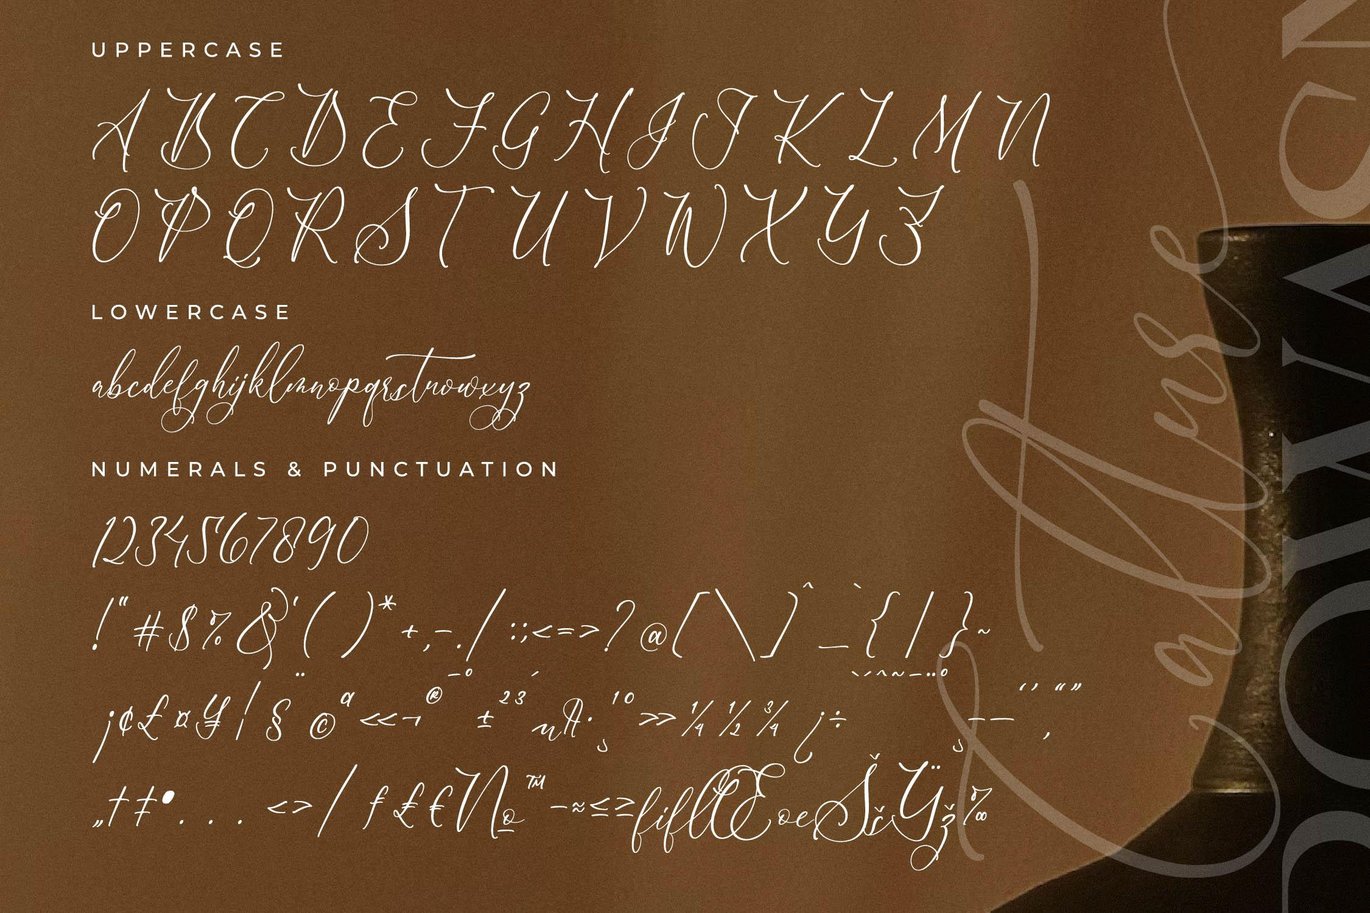 UPPERCASE
A B C D E F G H I J K L M N
O P Q R S T U V W X Y Z
LOWERCASE
abcdefghijklmnopqrstuvwxyz
NUMERALS & PUNCTUATION
1234567890
! " # $ % & ' ( ) * + , - . / : ; < = > ? @ [ \ ] ^ _ ` { | } ~
¡ ¢ £ ¤ ¥ ¦ § ¨ © ª « ¬ ® ¯ ° ± ² ³ ´ µ ¶ · ¸ ¹ º » ¼ ½ ¾ ¿ ÷ – — ‘ ’ ‚ “ ”
„ † ‡ • . . . ‹ › ⁄ ƒ ₤ € № ™ − ≈ ≤ ≥ fi fl Œ œ Š š Ÿ ž ‰